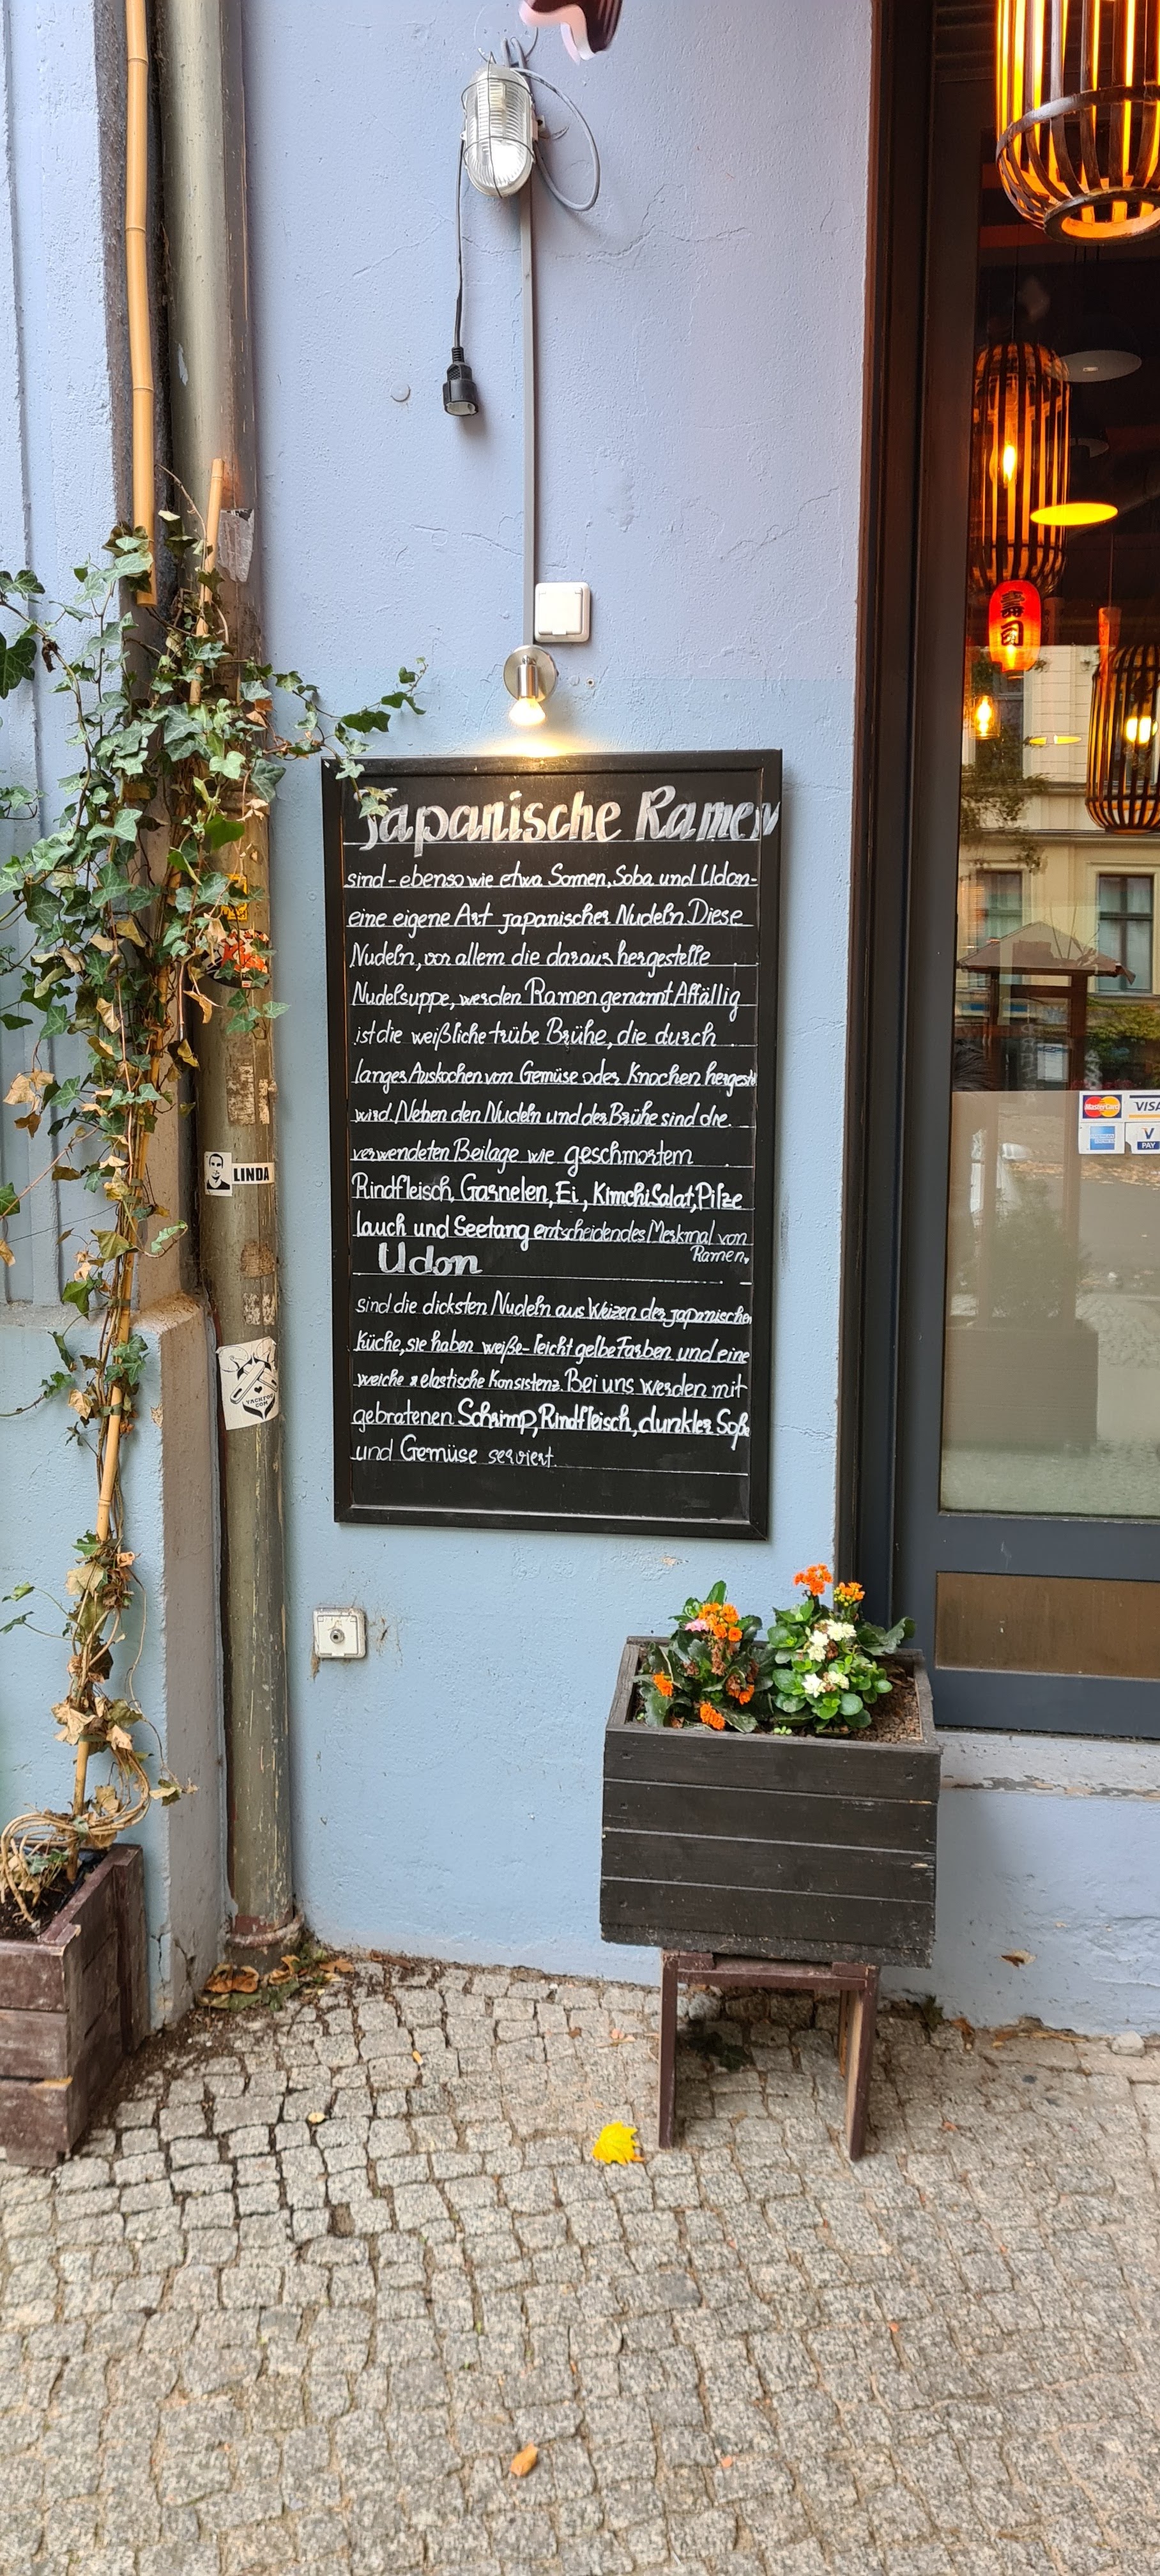 Japanische Ramen
sind - ebenso wie etwa Somen, Soba und Udon -
eine eigene Art japanischer Nudeln. Diese
Nudeln, vor allem die daraus hergestelle
Nudelsuppe, werden Ramen genannt Affällig
ist die weißliche trübe Brühe, die durch
langes Auskochen von Gemüse oder Knochen hergestl
wird. Neben den Nudeln und der Brühe sind die
verwendeten Beilage wie geschmortem
Rindfleisch, Garnelen, Ei, Kimchi Salat, Pilze
lauch und Seetang entscheidendes Merkmal von
Ramen.
Udon
sind die dicksten Nudeln aus Weizen der japanischen
Küche, sie haben weiße - leicht gelbe Farben und eine
weiche & elastische Konsistenz. Bei uns werden mit
gebratenen Schrimp, Rindfleisch, dunkler Soße
und Gemüse serviert.
LINDA
YACKFOU
.COM
寿司
MasterCard
VISA
V
PAY